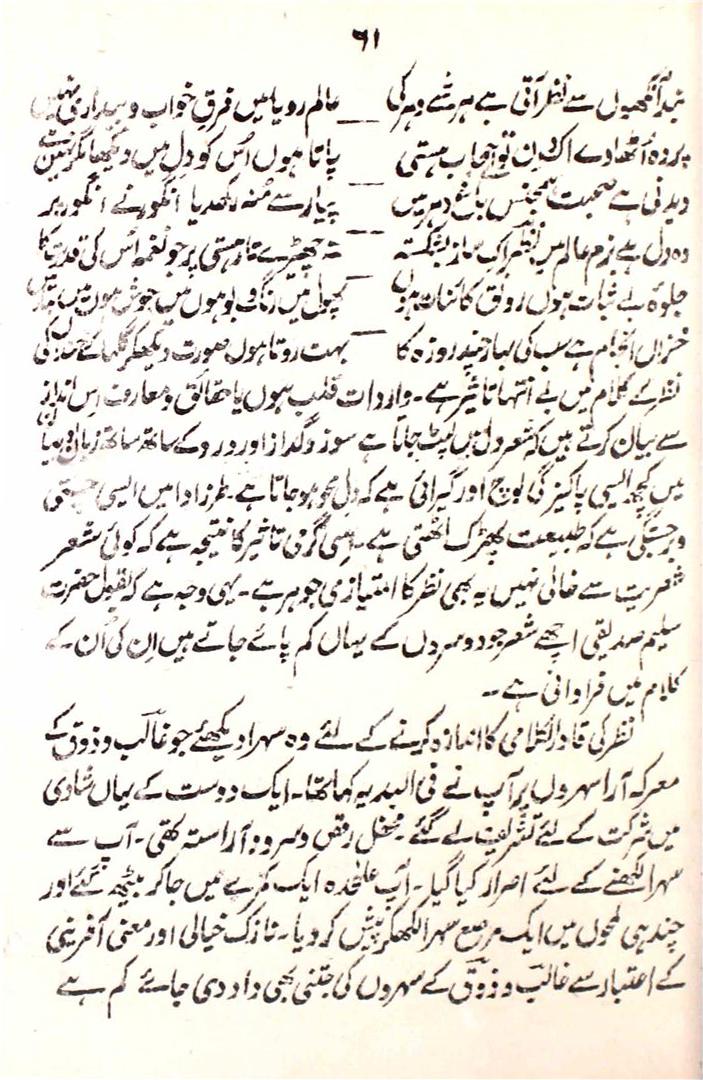 ۶۱
بند آنکھوں سے نظر آتی ہے ہر شے دہر کی — عالمِ رویا میں فرقِ خواب و بیداری نہیں
پردہ اُٹھا دے اک دن تو حجابِ ہستی — پاتا ہوں اُس کو دل میں دیکھا مگر نہیں ہے
دیدنی ہے صحبتِ ہمجنس باغِ دہر میں — پیار سے مُنہ رکھدیا انگور نے انگور پر
وہ دل ہے بزمِ عالم میں نظر اک سازِ بشکستہ — نہ چھیڑے تارِ ہستی پر جو نغمہ اُس کی قدرت کا
جلوۂ بے ثبات ہوں رونقِ کائنات ہوں — پھول میں رنگ و بو ہوں میں جوش ہوں میں بہار میں
خزاں انجام ہے سب کی بہارِ چند روزہ کا — بہت روتا ہوں صورت دیکھکر گلہائے خنداں کی
نظر کے کلام میں بے انتہا تاثیر ہے۔ وارداتِ قلب ہوں یا حقائق و معارف اس انداز
سے بیان کرتے ہیں کہ شعر دل میں لپٹ جاتا ہے سوز و گداز اور درد کے ساتھ ساتھ زبان و بیان
میں کچھ ایسی پاکیزگی لوچ اور گیرائی ہے کہ دل محو ہو جاتا ہے۔ طرزِ ادا میں ایسی چستی
و برجستگی ہے کہ طبیعت پھڑک اٹھتی ہے۔ اسی گرمیِ تاثیر کا نتیجہ ہے کہ کوئی شعر
شعریت سے خالی نہیں یہ بھی نظر کا امتیازی جوہر ہے۔ یہی وجہ ہے کہ بقول حضرت
سلیم صدیقی اچھے شعر جو دوسروں کے یہاں کم پائے جاتے ہیں اِن کی اُن۔ کے
کلام میں فراوانی ہے۔
نظر کی قادرالکلامی کا اندازہ کرنے کے لئے وہ سہرا دیکھئے جو غالب و ذوق کے
معرکہ آرا سہروں پر آپ نے فی البدیہہ کہا تھا۔ ایک دوست کے یہاں شادی
میں شرکت کے لئے تشریف لے گئے۔ محفلِ رقص و سرود آراستہ تھی۔ آپ سے
سہرا لکھنے کے لئے اصرار کیا گیا۔ آپ علیٰحدہ ایک کمرے میں جا کر بیٹھ گئے اور
چند ہی لمحوں میں ایک مرصع سہرا لکھکر پیش کر دیا۔ نازک خیالی اور معنی آفرینی
کے اعتبار سے غالب و ذوق کے سہروں کی جتنی بھی داد دی جائے کم ہے